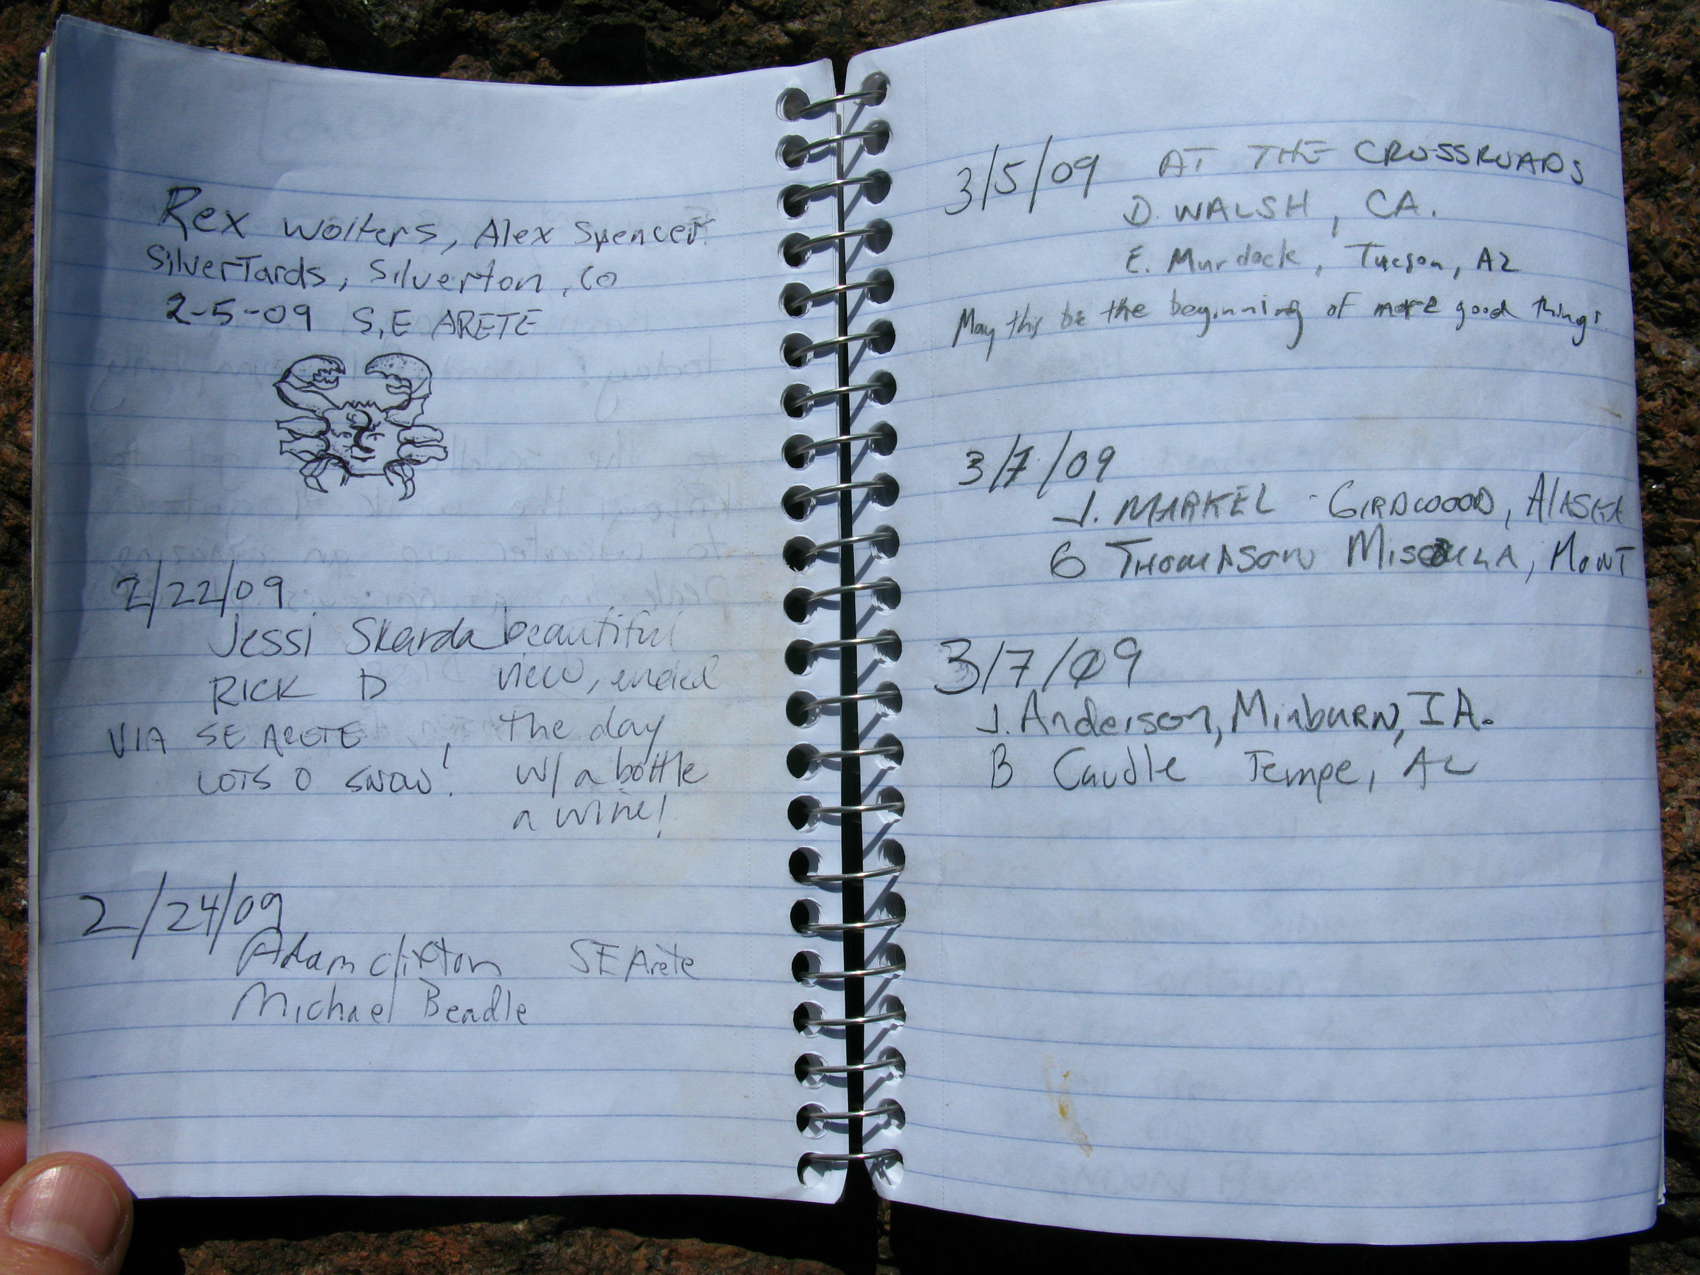 Rex Wolters, Alex Spencer
SilverTards, Silverton, CO
2-5-09 S,E ARETE
2/22/09
Jessi Skarda beautiful
RICK D view, ended
VIA SE ARETE, the day
LOTS O SNOW! w/ a bottle
a wine!
2/24/09
Adam Clifton SE Arete
Michael Beadle
3/5/09 AT THE CROSSROADS
D. WALSH, CA.
E. Murdock, Tucson, AZ
May this be the beginning of more good things
3/7/09
J. MARKEL - GIRDWOOD, ALASKA
G THOMPSON MISSOULA, MONT
3/7/09
J. Anderson, Minburn, IA.
B Caudle Tempe, AZ